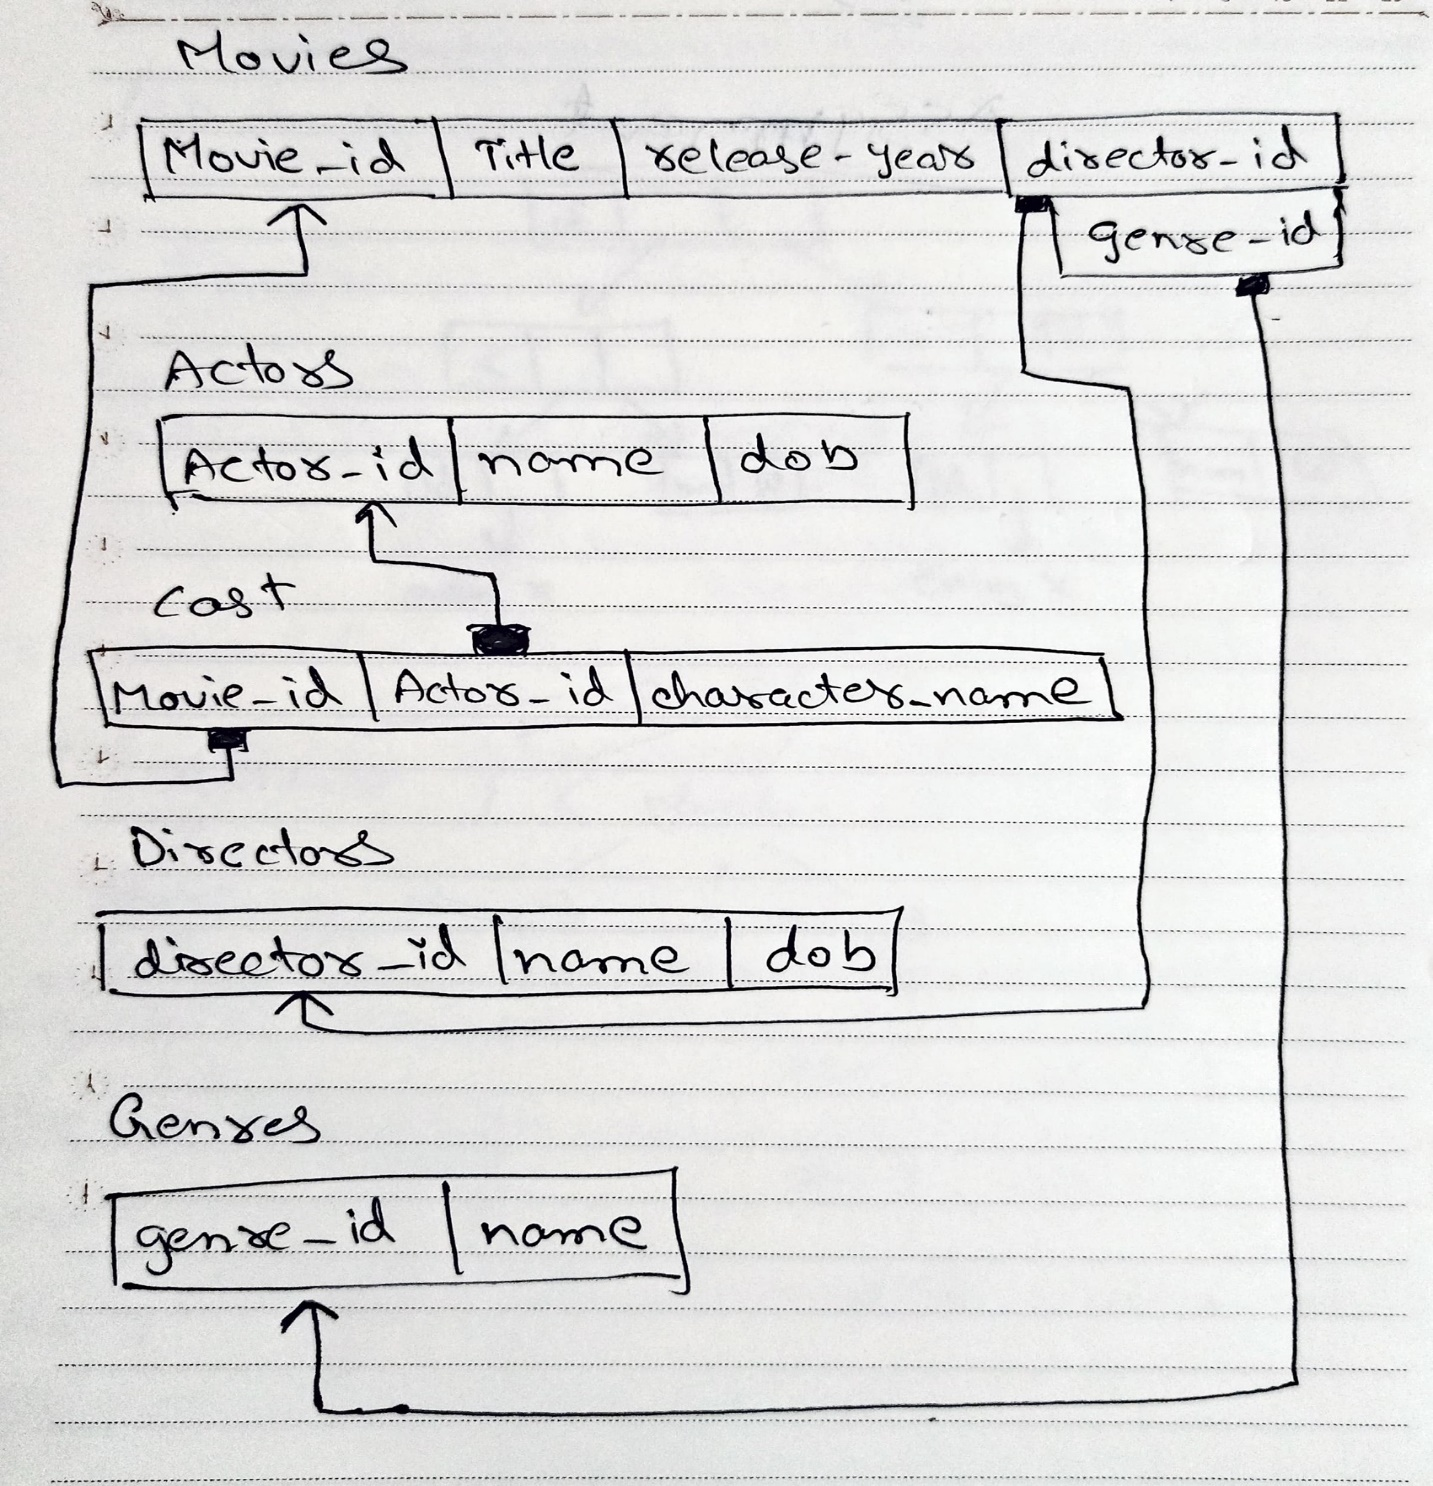 Movies
Movie_id Title release-year director-id
genre-id
Actors
Actor-id name dob
Cast
Movie-id Actor-id character_name
Directors
director_id name dob
Genres
genre_id name